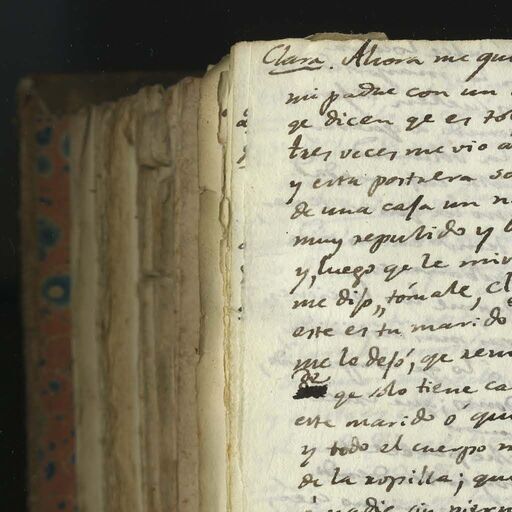 Clara. Ahora me qui
mi padre con un
qe dicen qe es to
tres veces me vio a
y esta postrera so
de una casa un n
muy repulido y b
y luego qe le mir
me dijo, tómale, Cl
este es tu marido
me le dejó, qe rem
de qe solo tiene ca
este marido ó que
y todo el cuerpo m
de la ropilla; que
á nadie sin piern